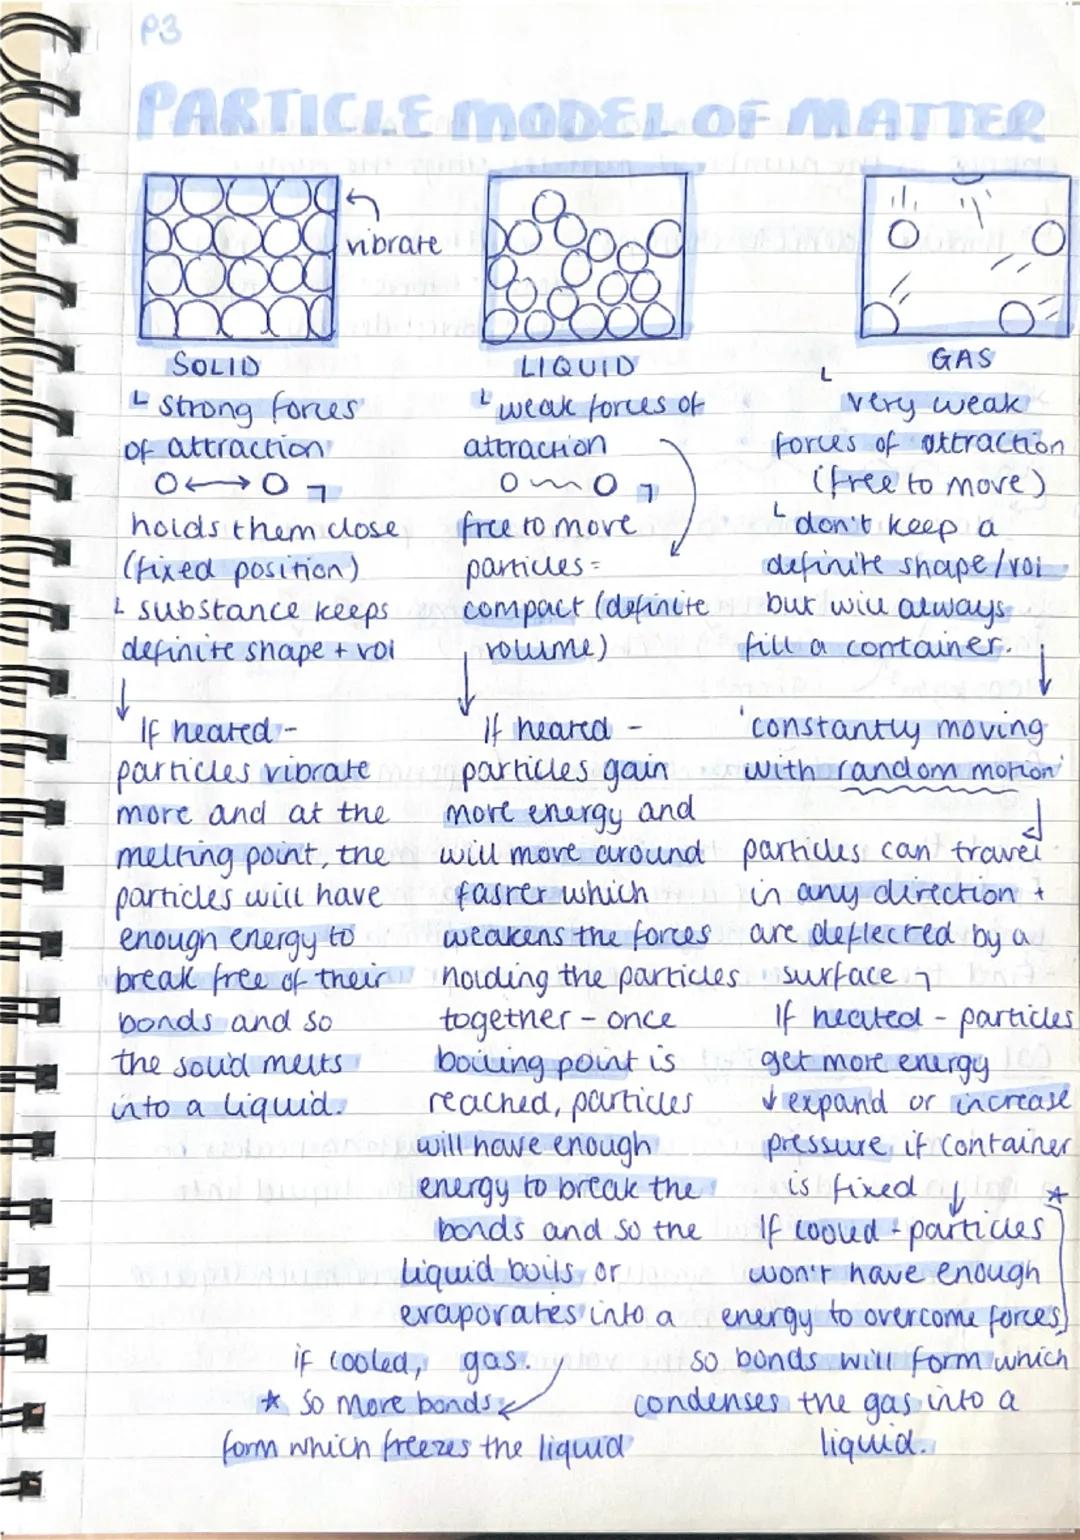 P3
PARTICLE MODEL OF MATTER
vibrate
SOLID
strong forces
of attraction
holds them close
(fixed position)
substance keeps
definite shape + vol
If heated -
particles vibrate
more and at the
melting point, the
particles will have
enough energy to
break free of their
bonds and so
the solid melts
into a liquid.
LIQUID
weak forces of
attraction
free to move
particles =
compact (definite
volume)
If heated -
particles gain
more energy and
will move around
faster which
weakens the forces
holding the particles
together - once
boiling point is
reached, particles
will have enough
energy to break the
bonds and so the
liquid boils or
evaporates into a
gas.
if cooled,
* so more bonds
form which freezes the liquid
GAS
very weak
forces of attraction
(free to move)
don't keep a
definite shape/vol
but will always
fill a container.
'constantly moving
with random motion'
particles can travel
in any direction +
are deflected by a
surface
If heated - particles
get more energy
expand or increase
pressure if container
is fixed
*
If cooled - particles
won't have enough
energy to overcome forces
so bonds will form which
condenses the gas into a
liquid.